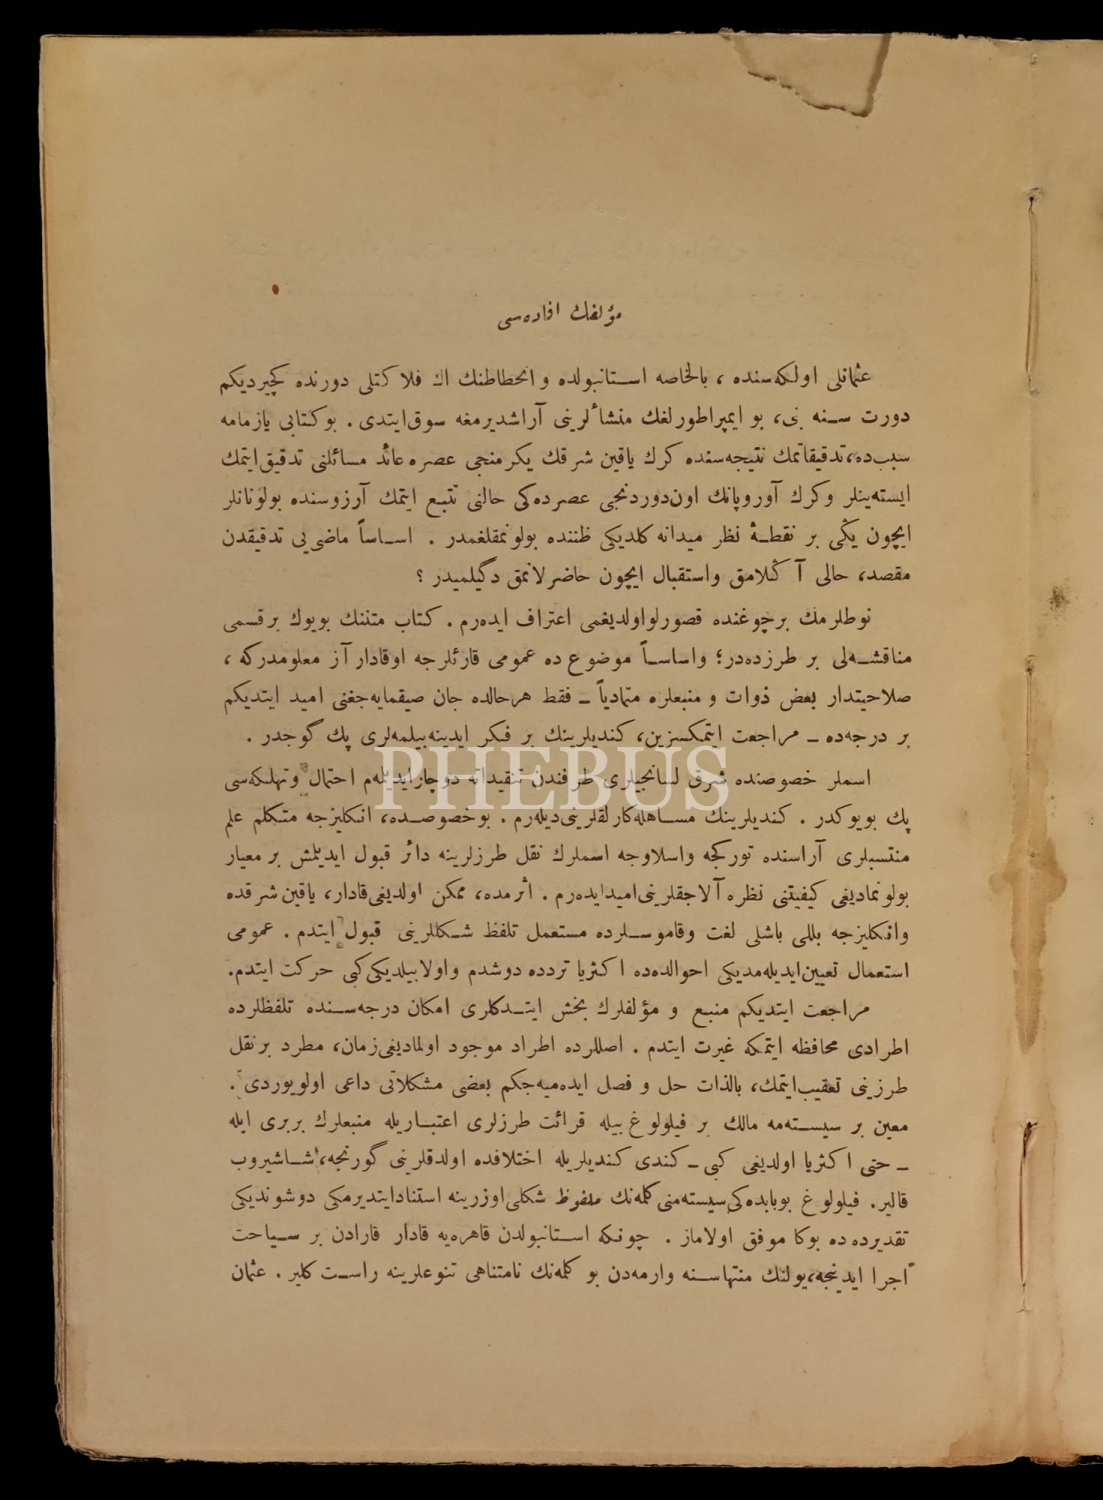 مؤلفك افاده‌سی
عثمانلی اولكه‌سنده ، بالخاصه استانبولده و انحطاطنك اك فلاكتلی دورنده كچیردیكم
دورت سنه بنی، بو ایمپراطورلغك منشأ لرینی آراشدیرمغه سوق ایتدی . بوكتابی یازمامه
سبب ده، تدقیقاتمك نتیجه‌سنده كرك یاقین شرقك یكرمنجی عصره عائد مسائلنی تدقیق ایتمك
ایسته‌ینلر وكرك آوروپانك اون‌دوردنجی عصرده‌كی حالنی تتبع ایتمك آرزوسنده بولونانلر
ایچون یڭی بر نقطهٔ نظر میدانه كلدیكی ظننده بولونمقلغمدر . اساساً ماضی‌یی تدقیقدن
مقصد، حالی آ ڭلامق واستقبال ایچون حاضرلانمق دگیلمیدر ؟
نوطلرمك برچوغنده قصورلو اولدیغمی اعتراف ایده‌رم . كتاب متننك بویوك برقسمی
مناقشه‌لی بر طرزده‌در؛ واساساً موضوع ده عمومی قارئلرجه اوقادار آز معلومدركه ،
صلاحیتدار بعض ذوات و منبعلره متمادیاً ـ فقط هرحالده جان صیقمایه‌جغنی امید ایتدیكم
بر درجه‌ده ـ مراجعت ایتمكسزین، كندیلرینك بر فكر ایدینه‌بیلمه‌لری پك گوجدر .
اسملر خصوصنده شرق لسانجیلری طرفندن تنقیداته دوچار ایدیلمه‌م احتمال وتهلكه‌سی
PHEBUS
پك بویوكدر . كندیلرینك مساهله‌كارلقلرینی دیله‌رم . بوخصوصده، انكلیزجه متكلم علم
منتسبلری آراسنده توركجه واسلاوجه اسملرك نقل طرزلرینه دائر قبول ایدیلمش بر معیار
بولونمادیغی كیفیتنی نظره آلاجقلرینی امید ایده‌رم . اثرمده، ممكن اولدیغی قادار، یاقین شرقده
وانكلیزجه بللی باشلی لغت وقاموسلرده مستعمل تلفظ شكللرینی قبول ایتدم . عمومی
استعمال تعیین ایدیله‌مدیكی احوالده‌ده اكثریا تردده دوشدم واولابیلدیكی كبی حركت ایتدم.
مراجعت ایتدیكم منبع و مؤلفلرك بخش ایتدكلری امكان درجه‌سنده تلفظلرده
اطرادی محافظه ایتمكه غیرت ایتدم . اصللرده اطراد موجود اولمادیغی زمان، مطرد برنقل
طرزینی تعقیب ایتمك، بالذات حل و فصل ایده‌میه‌جكم بعضی مشكلاتی داعی اولویوردی .
معین بر سیسته‌مه مالك بر فیلولوغ بیله قرائت طرزلری اعتباریله منبعلرك بربری ایله
ـ حتی اكثریا اولدیغی كبی ـ كندی كندیلریله اختلافده اولدقلرینی گورنجه، شاشیروب
قالیر. فیلولوغ بوبابده‌كی سیسته‌منی كلمه‌نك ملفوظ شكلی اوزرینه استناد ایتدیرمكی دوشوندیكی
تقدیرده ده بوكا موفق اولاماز . چونكه استانبولدن قاهره‌یه قادار قارادن بر سیاحت
اجرا ایدنجه، یولنك منتهاسنه وارمه‌دن بو كلمه‌نك نامتناهی تنوعلرینه راست كلیر . عثمان